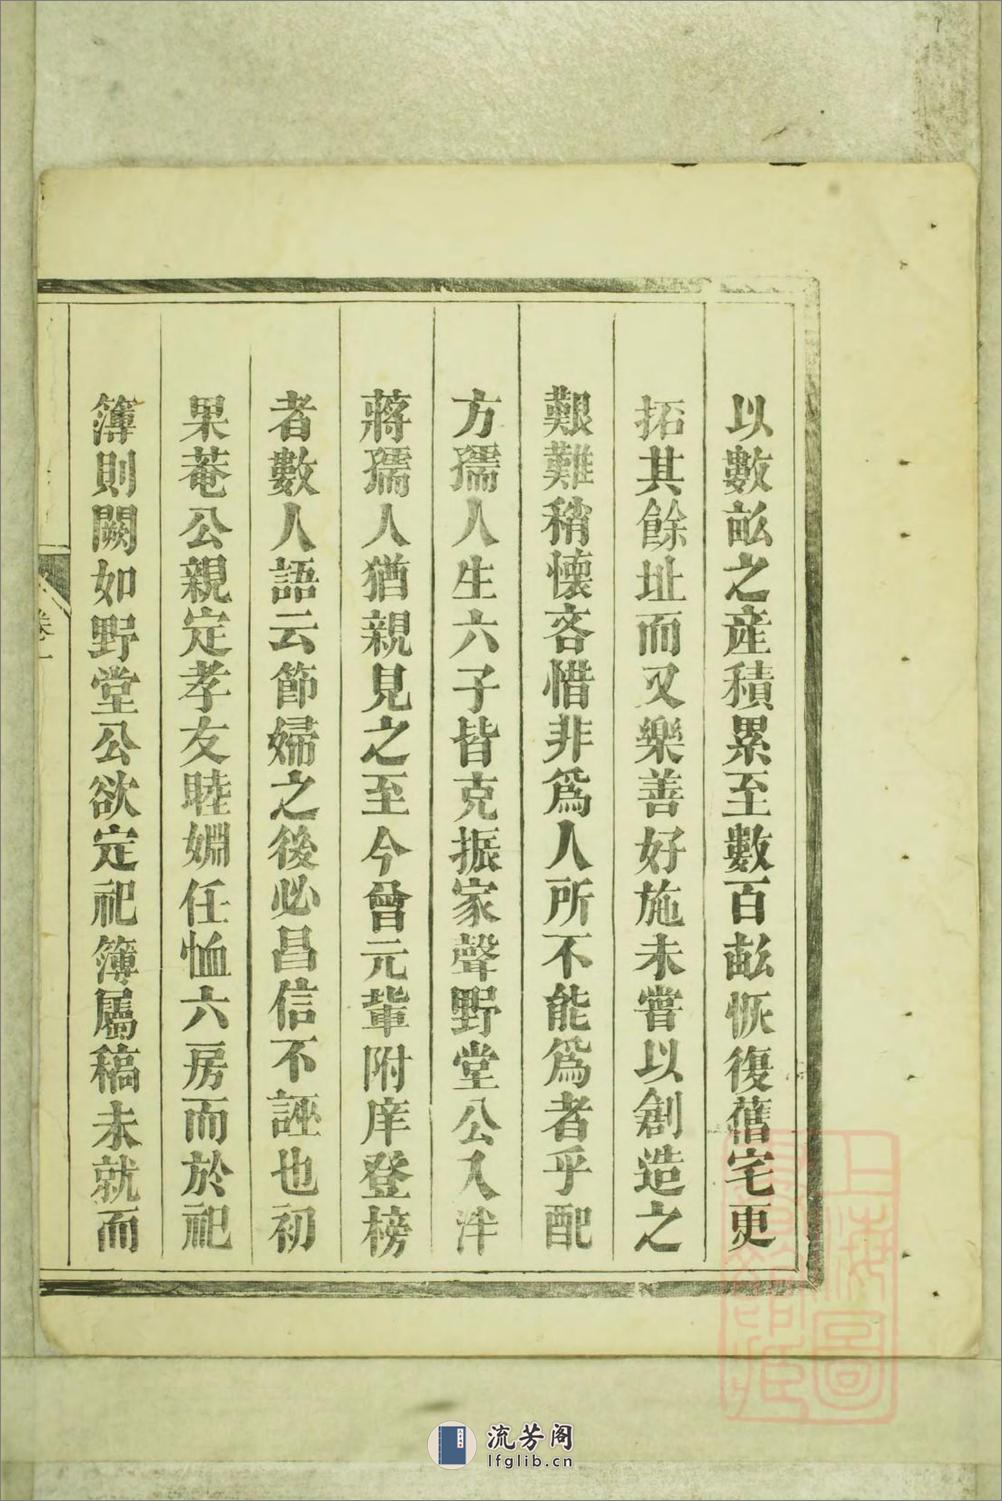 以數畝之產積累至數百畝恢復舊宅更
拓其餘址而又樂善好施未嘗以創造之
艱難稍懷吝惜非爲人所不能爲者乎配
方孺人生六子皆克振家聲野堂公入泮
蔣孺人猶親見之至今曾元輩附庠登榜
者數人語云節婦之後必昌信不誣也初
果菴公親定孝友睦婣任恤六房而於祀
簿則闕如野堂公欲定祀簿屬稿未就而
卷一
上海圖
流芳阁
lfglib.cn